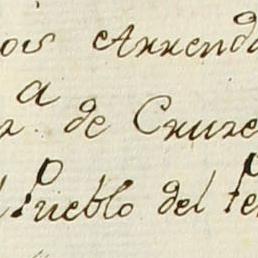 ois Arrenda
a
r. de Cruze
l Pueblo del Pe